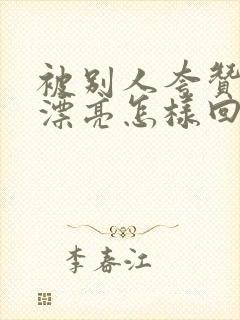 被别人夸赞
漂亮怎样回
李春江